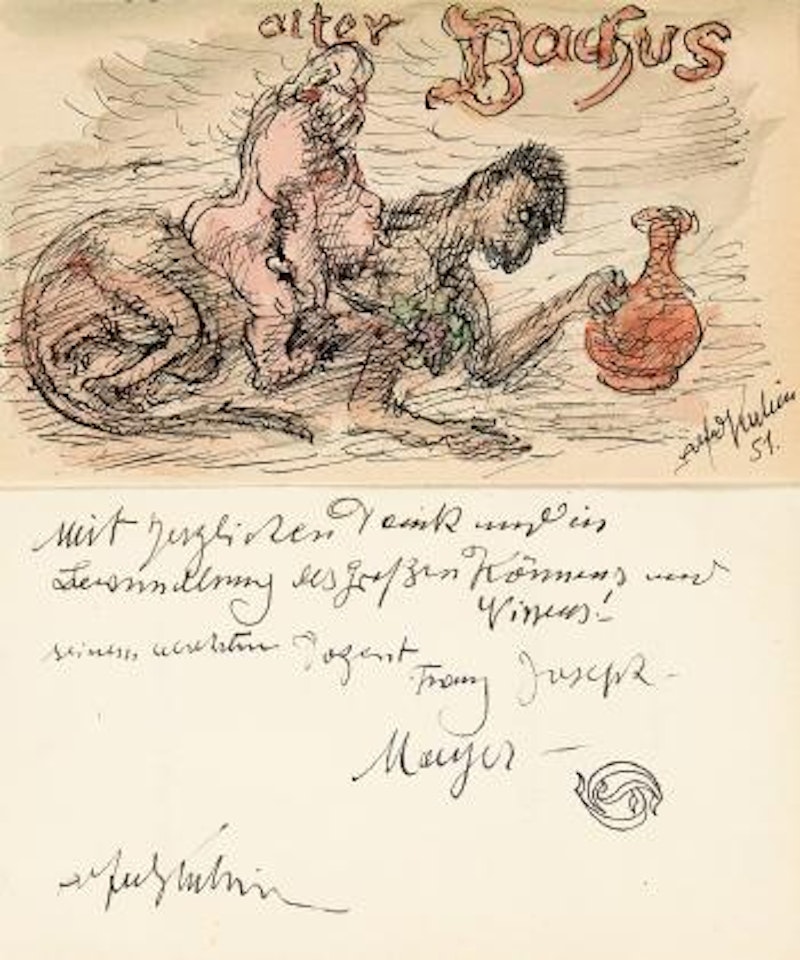 alter Bachus
Alfred Kubin
51.
Mit herzlichen Dank und in
Bewunderung des großen Könnens und
Wissens!
seinem Dozent
Franz Joseph
Mayer
Alfred Kubin